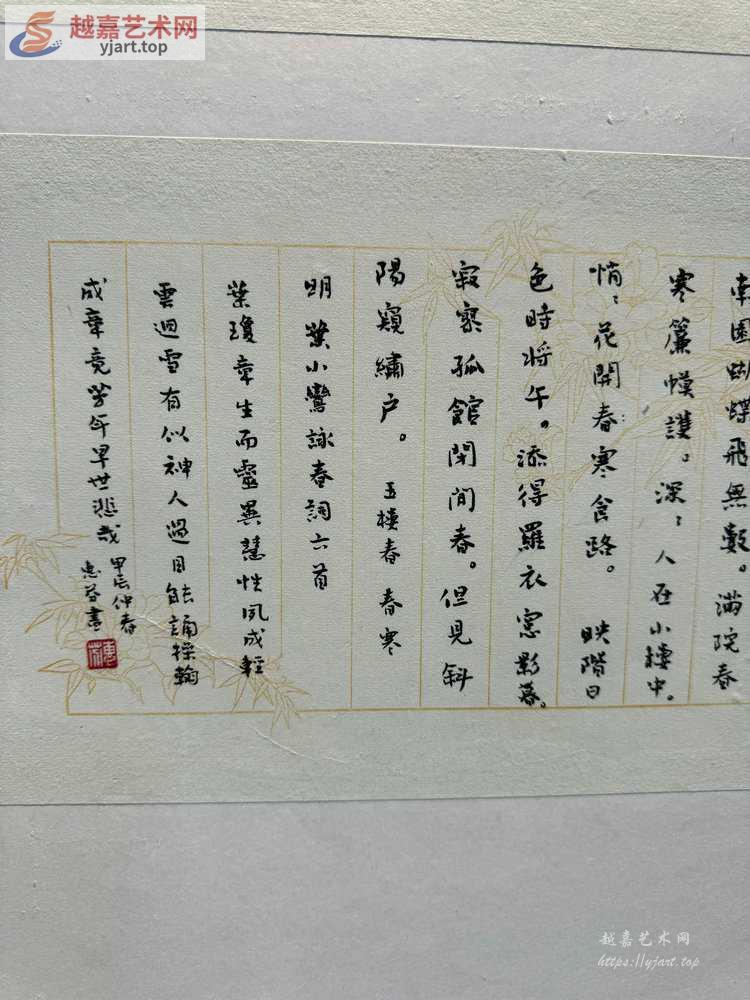 越嘉艺术网
yjart.top
南園蝴蝶飛無數。滿院春
寒簾幙護。深〻人在小樓中。
悄〻花開春寒食路。 映階日
色時将午。添得羅衣窓影暮。
寂寞孤館閉閒春。但見斜
陽窺繡户。 玉樓春 春寒
明葉小鸞詠春詞六首
葉瓊章生而靈異慧性夙成輕
雲迴雪有似神人過目能誦操翰
成章竟芳年早世悲哉
甲辰仲春
惠芬書
越嘉艺术网
https://yjart.top